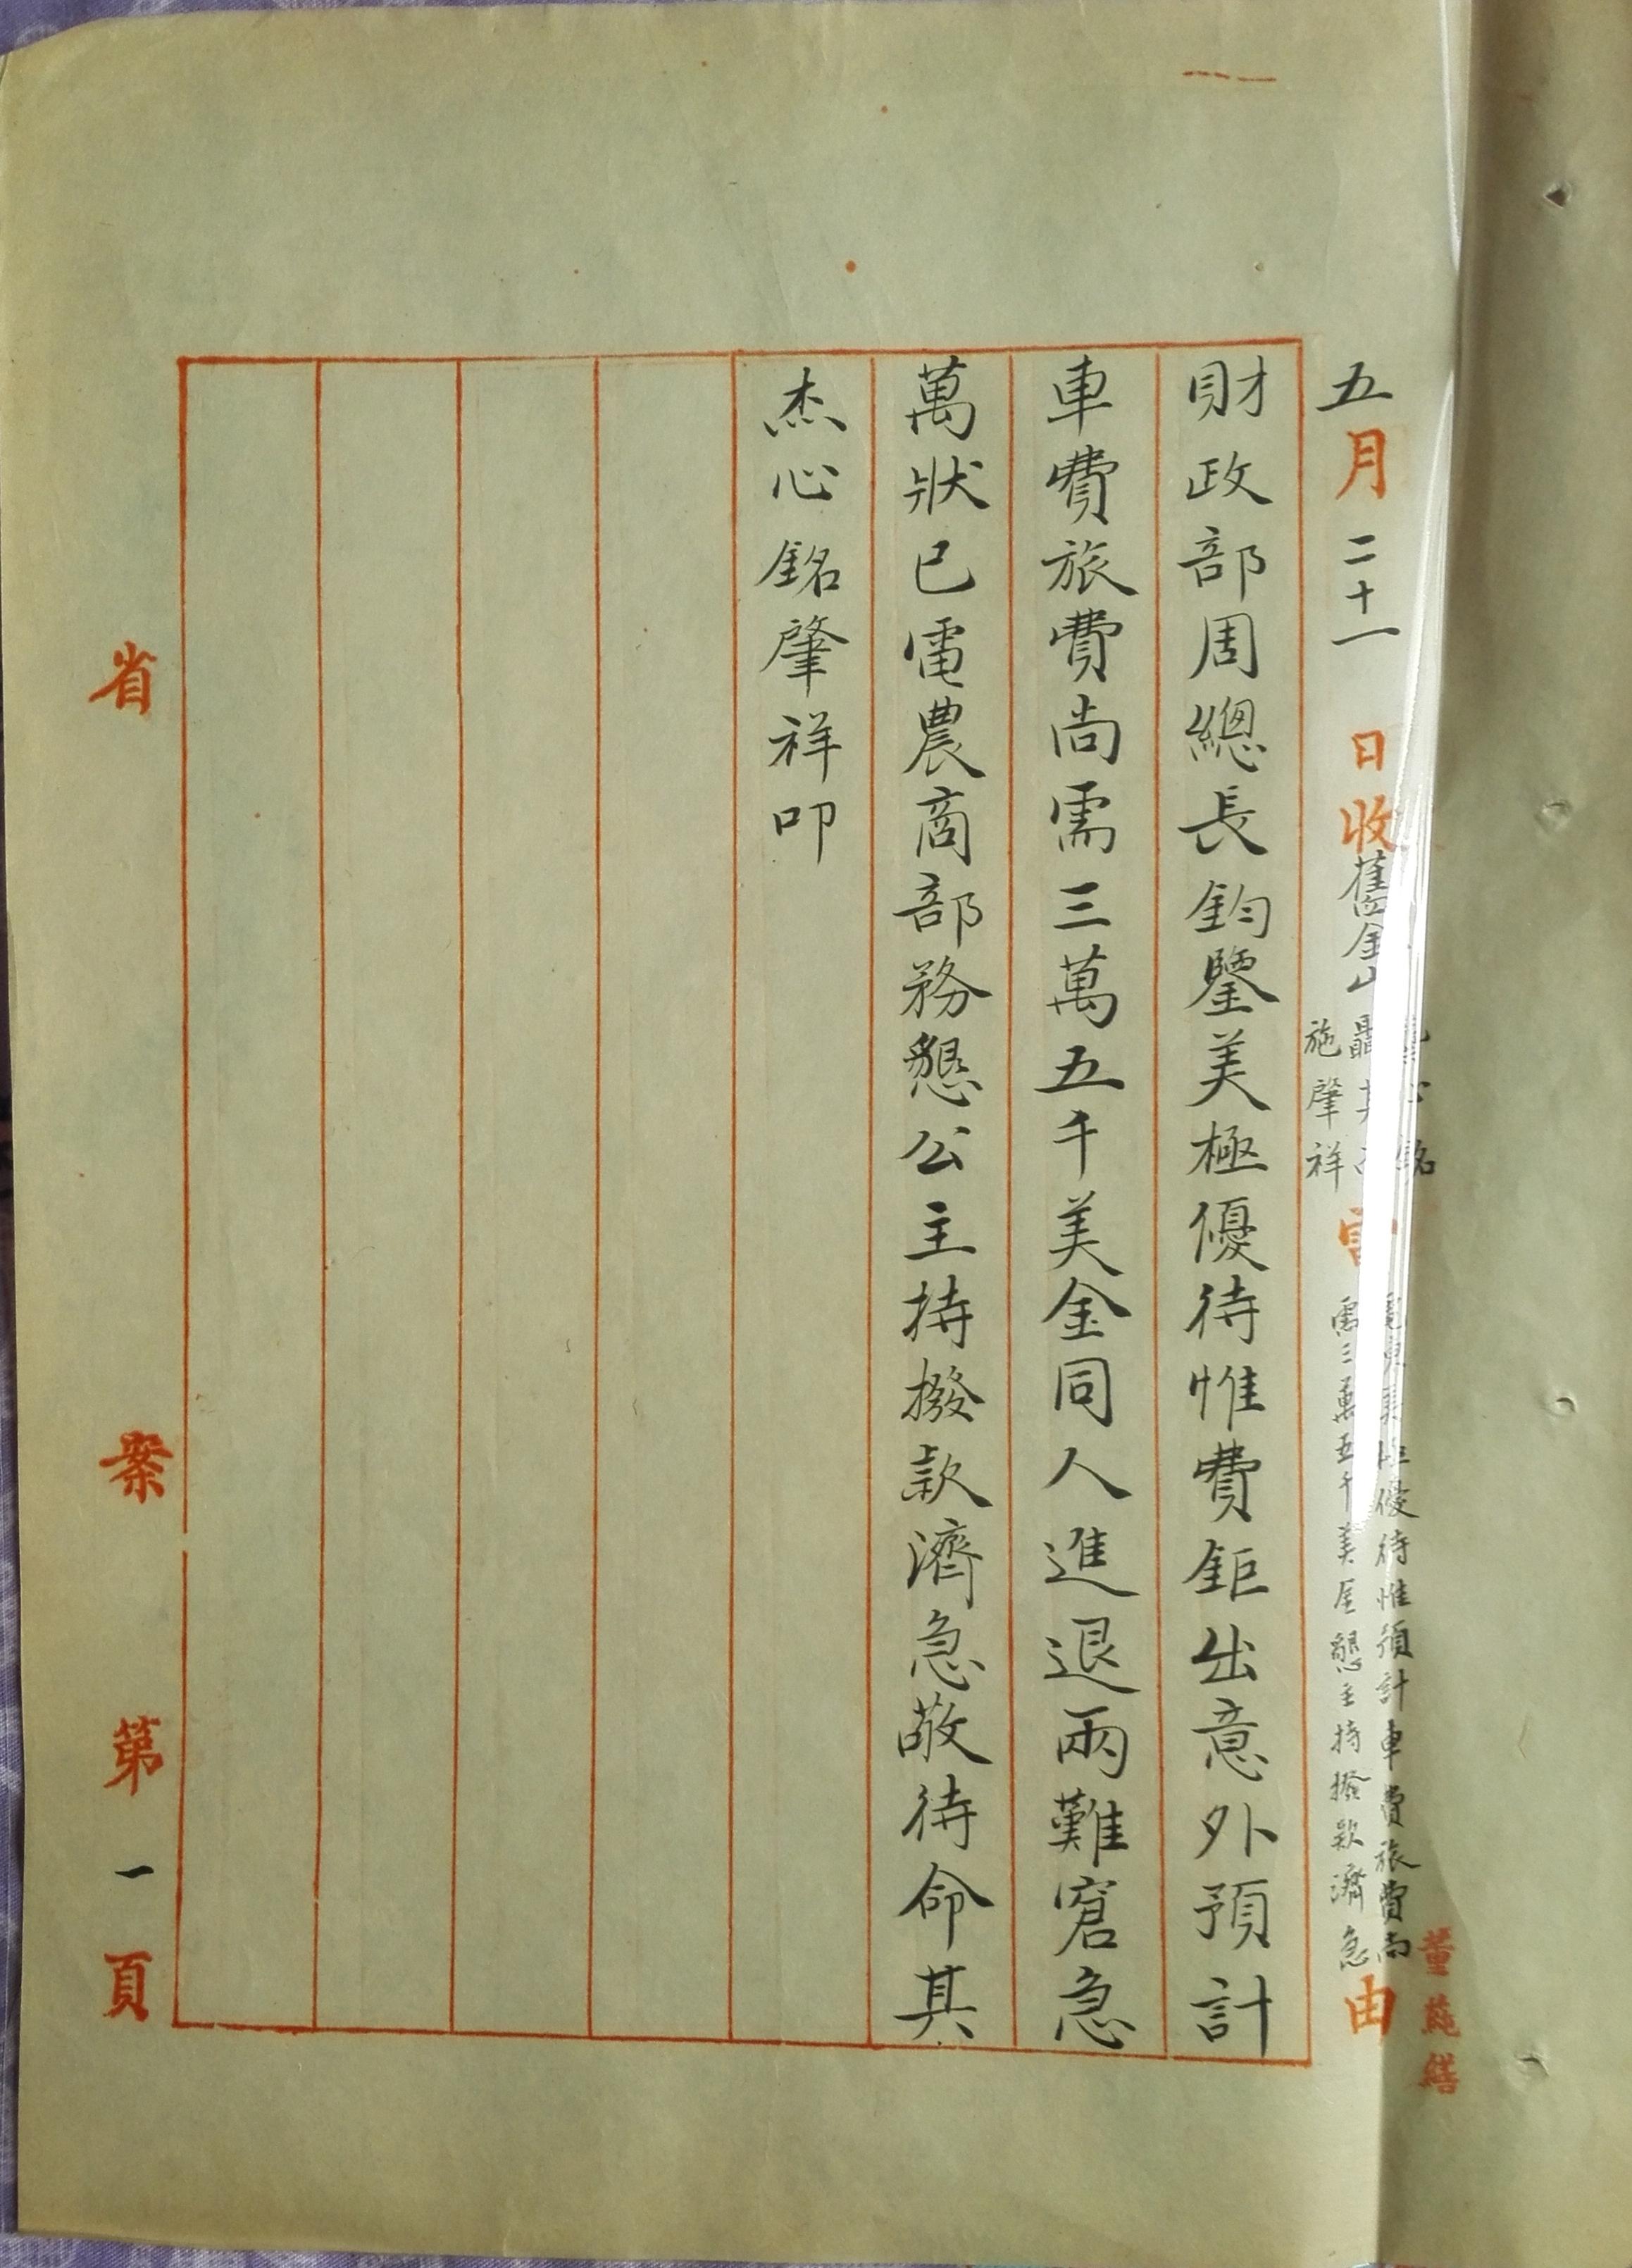 五月二十一日收舊金山
銘
聶其
施肇祥
美極優待惟預計車費旅費尚
需三萬五千美金懇主持撥款濟急
由
董蒓繕
財政部周總長鈞鑒美極優待惟費鉅出意外預計
車費旅費尚需三萬五千美金同人進退兩難窘急
萬狀已電農商部務懇公主持撥款濟急敬待命其
杰心銘肇祥叩
省 案 第一頁